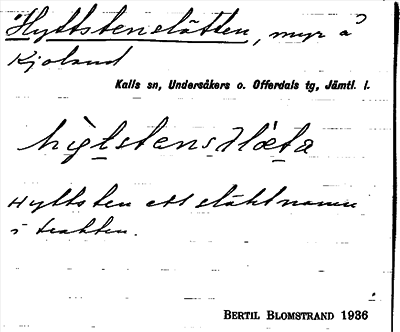 Hyttstenslåtten, myr å
Kjoland
Kalls sn, Undersåkers o. Offerdals tg, Jämtl. l.
Hyttsten ett släktnamn
i trakten.
BERTIL BLOMSTRAND 1936